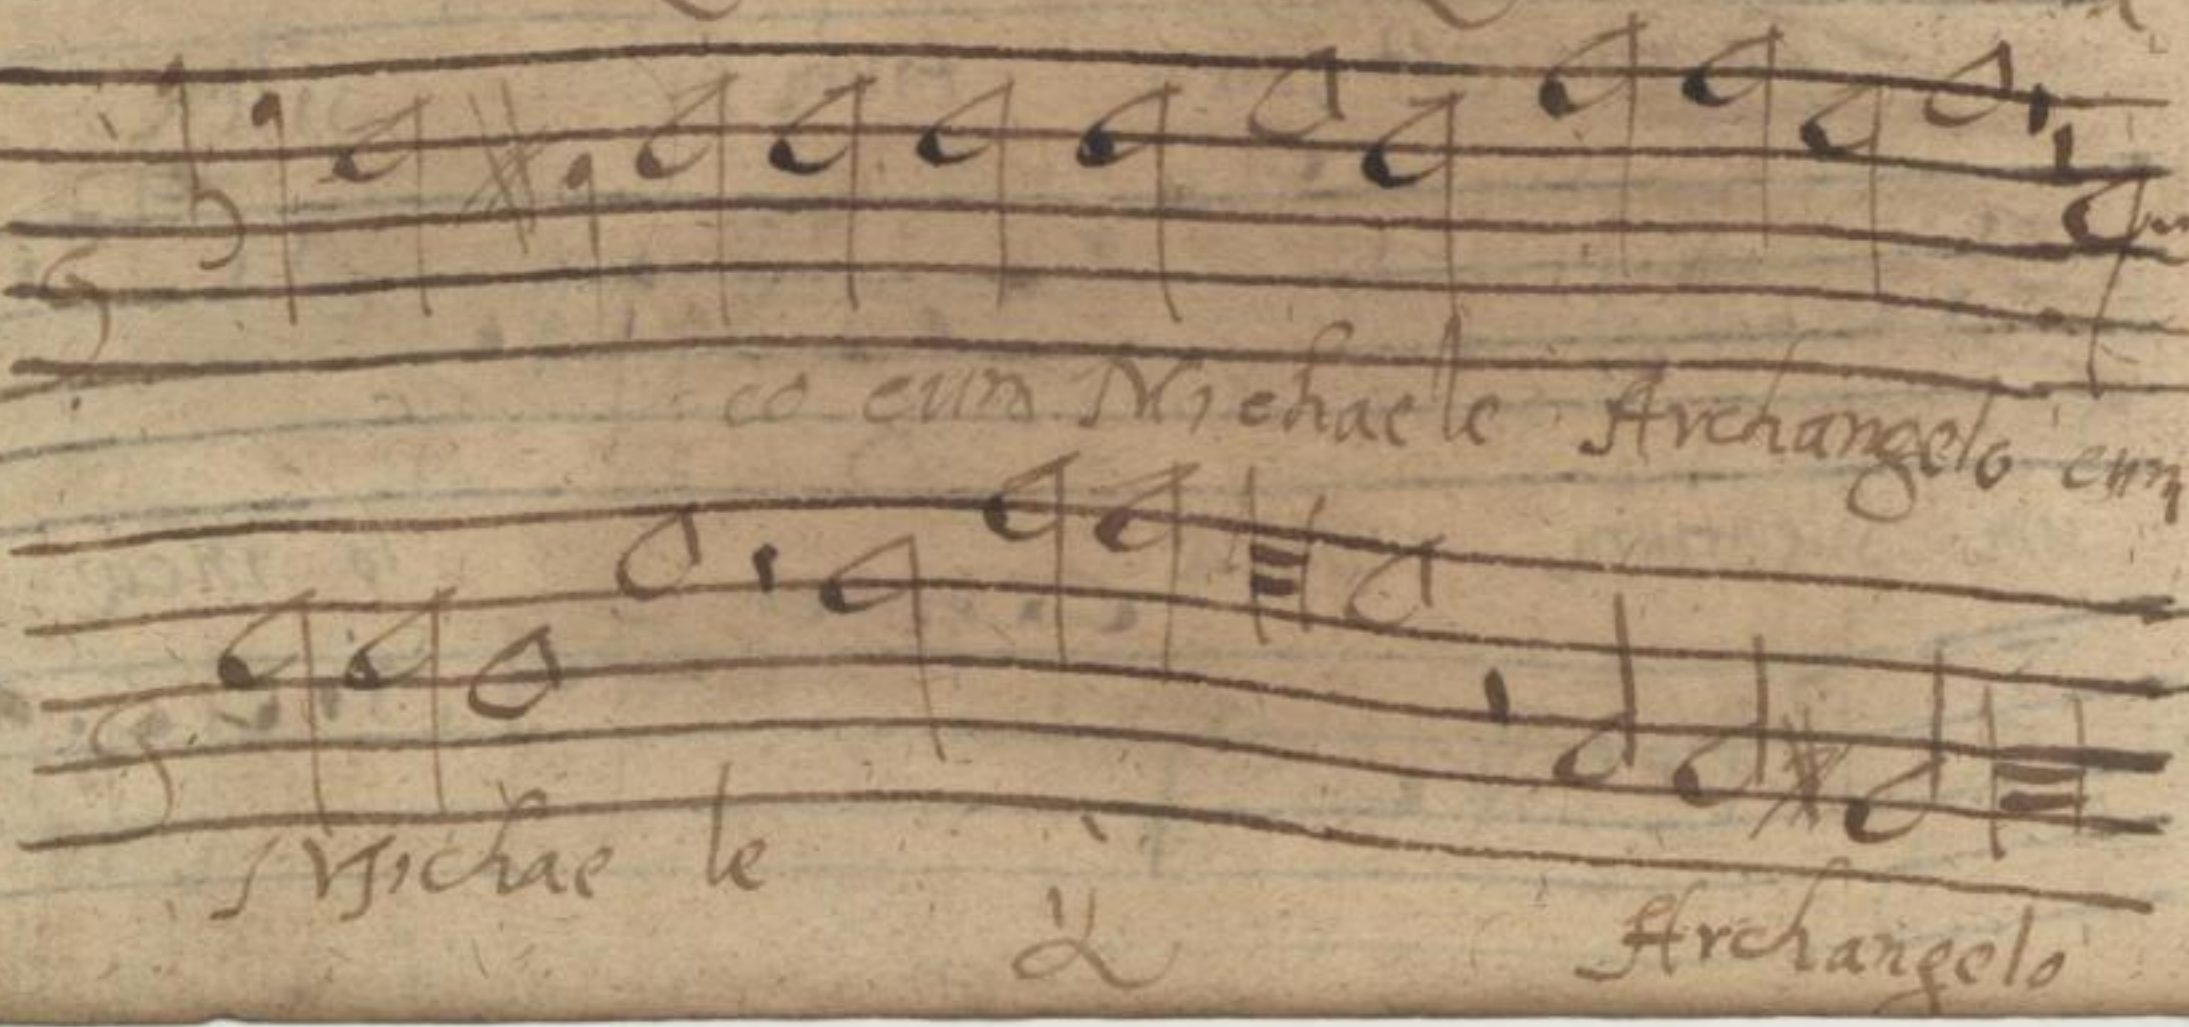 co cum Michaele Archangelo cum
Michae le Archangelo